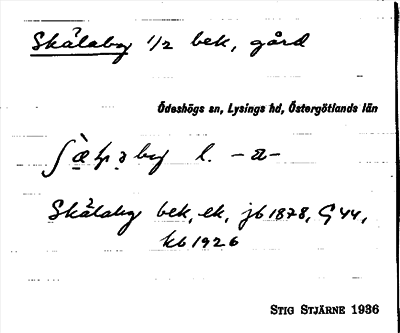 Skälaby 1/2 bek, gård
Ödeshögs sn, Lysings hd, Östergötlands län
l. -a-
Skälaby bek, ek, jb 1878, G 44,
kb 1926
STIG STJÄRNE 1936